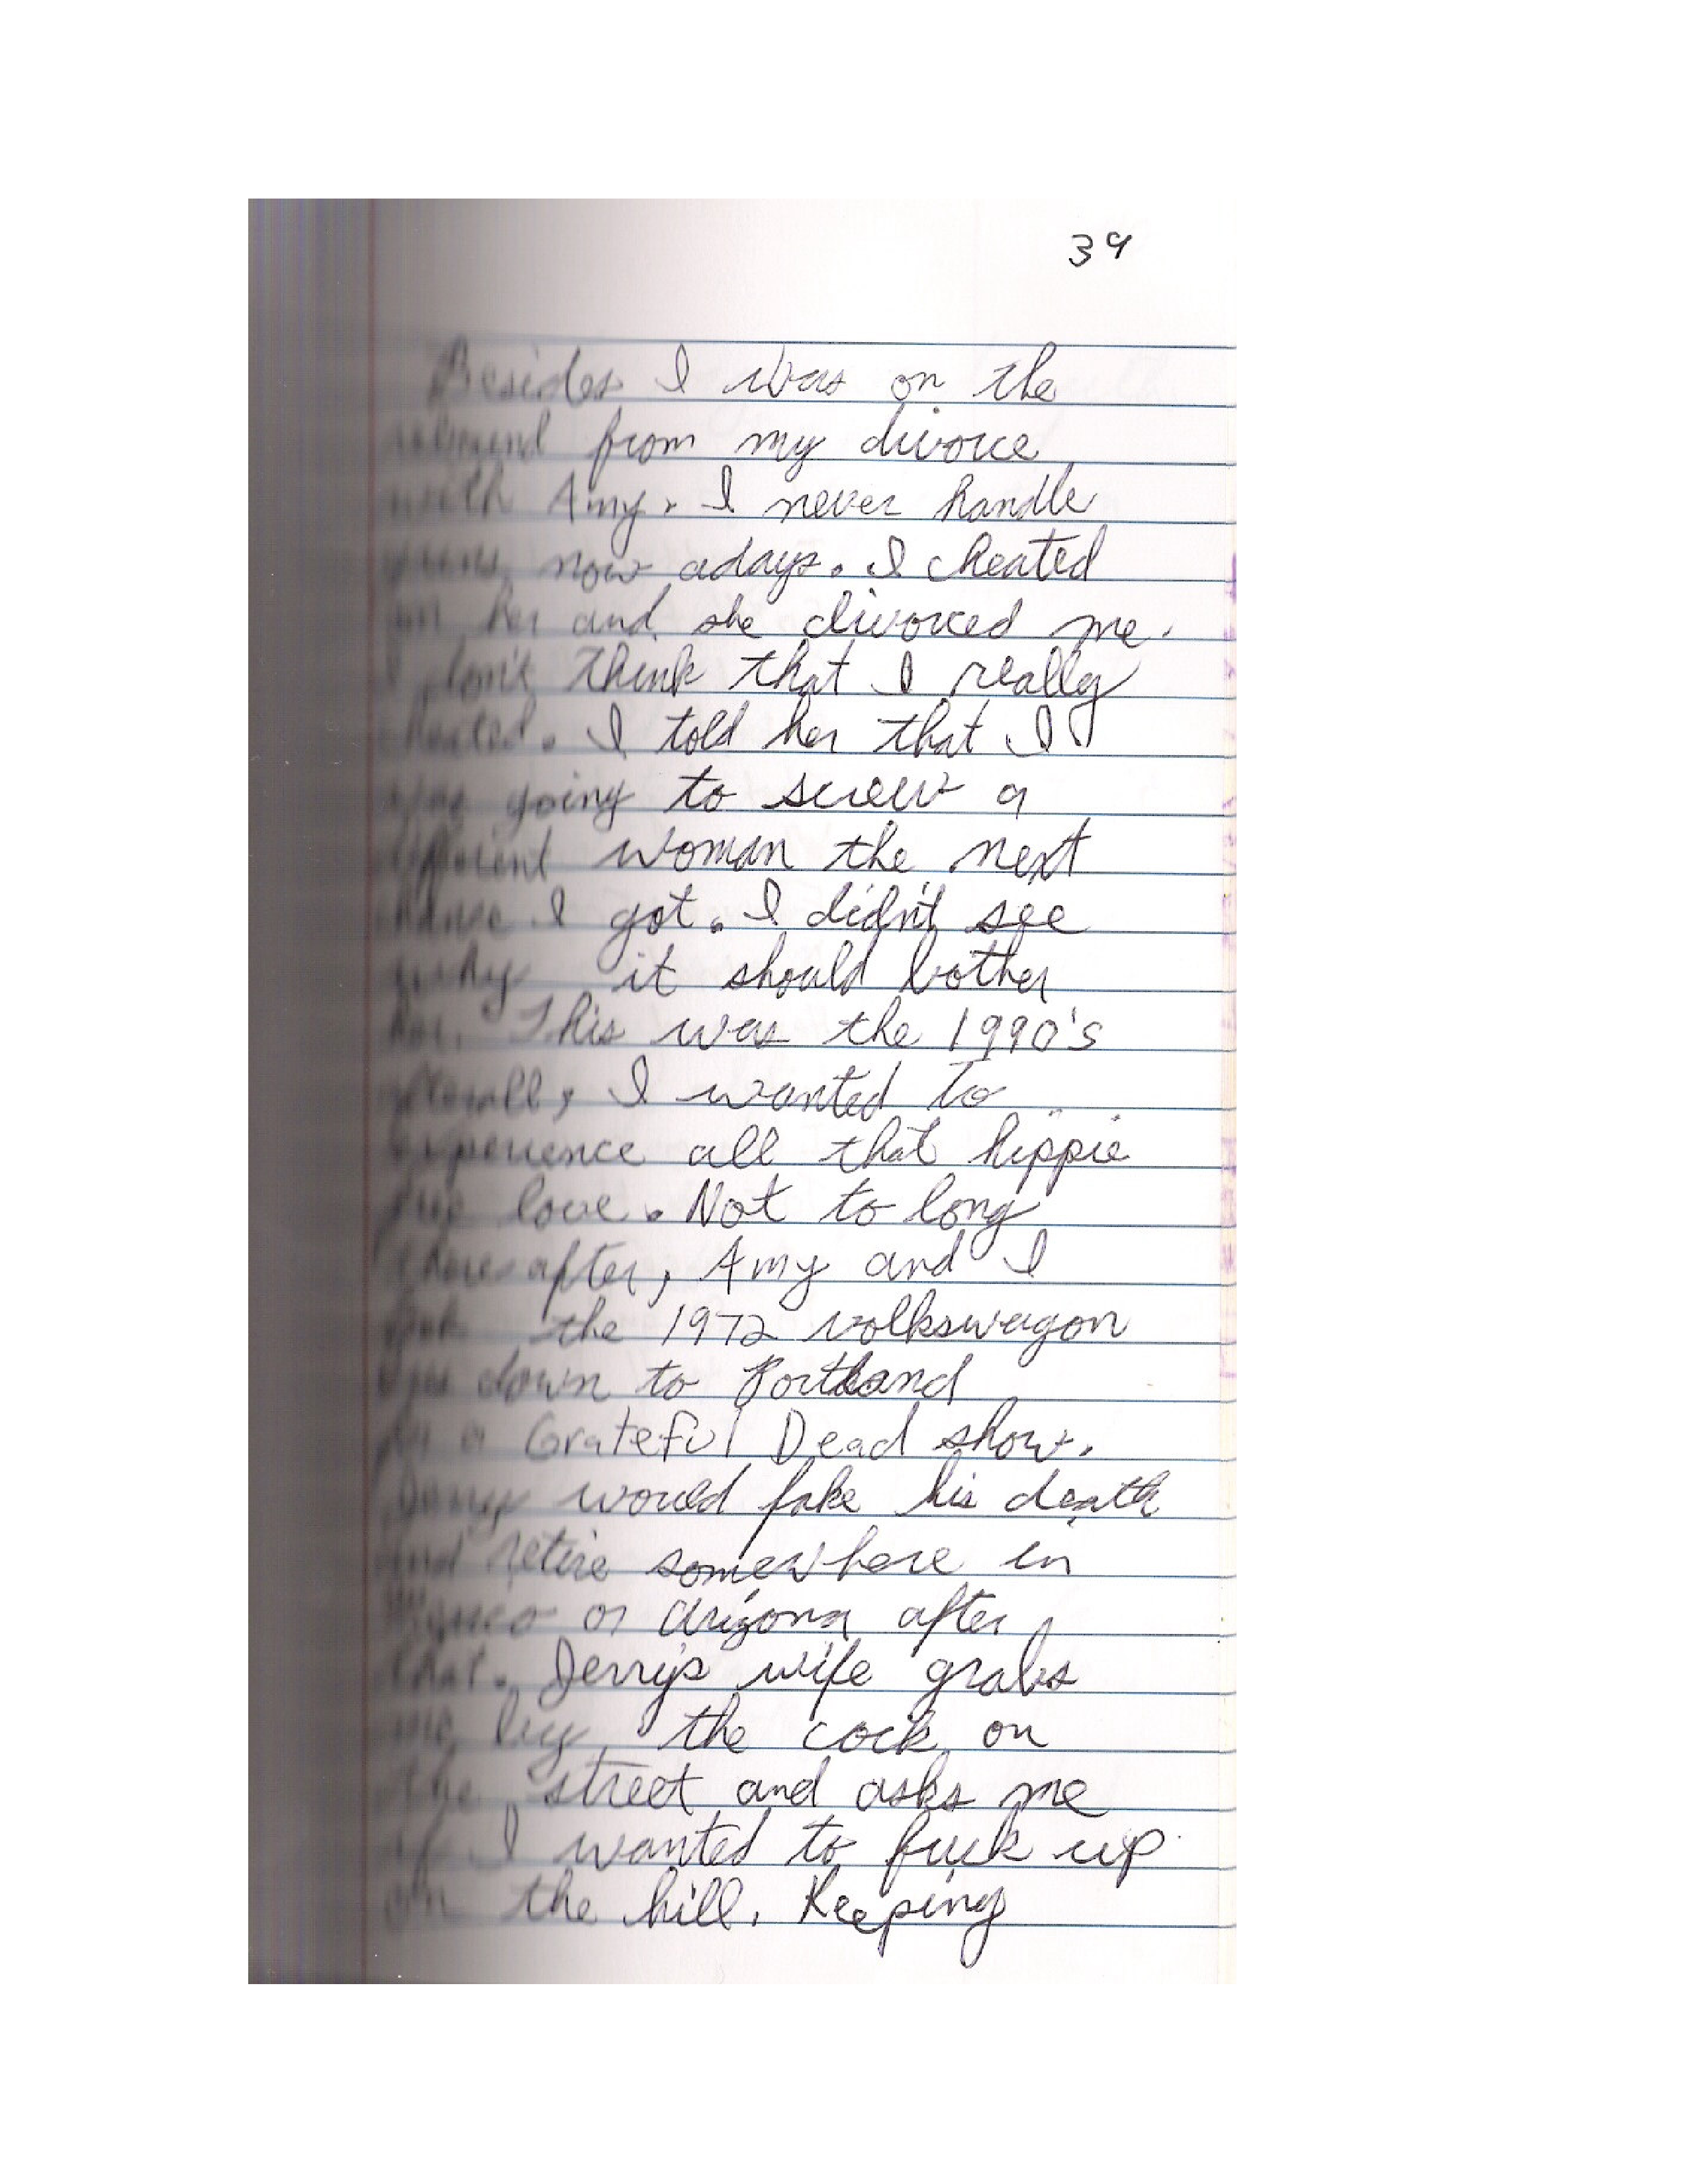 39
Besides I was on the
rebound from my divorce
with Amy. I never handle
now adays. I cheated
on her and she divorced me.
I don't think that I really
cheated. I told her that I
was going to screw a
different woman the next
chance I got. I didn't see
why it should bother
her. This was the 1990's
afterall, I wanted to
experience all that hippie
free love. Not to long
thereafter, Amy and I
took the 1972 volkswagon
down to Portland
a Grateful Dead show.
Jerry would fake his death
and retire somewhere in
Mexico or Arizona after
that. Jerry's wife grabs
me by the cock on
the street and asks me
if I wanted to fuck up
on the hill. Keeping